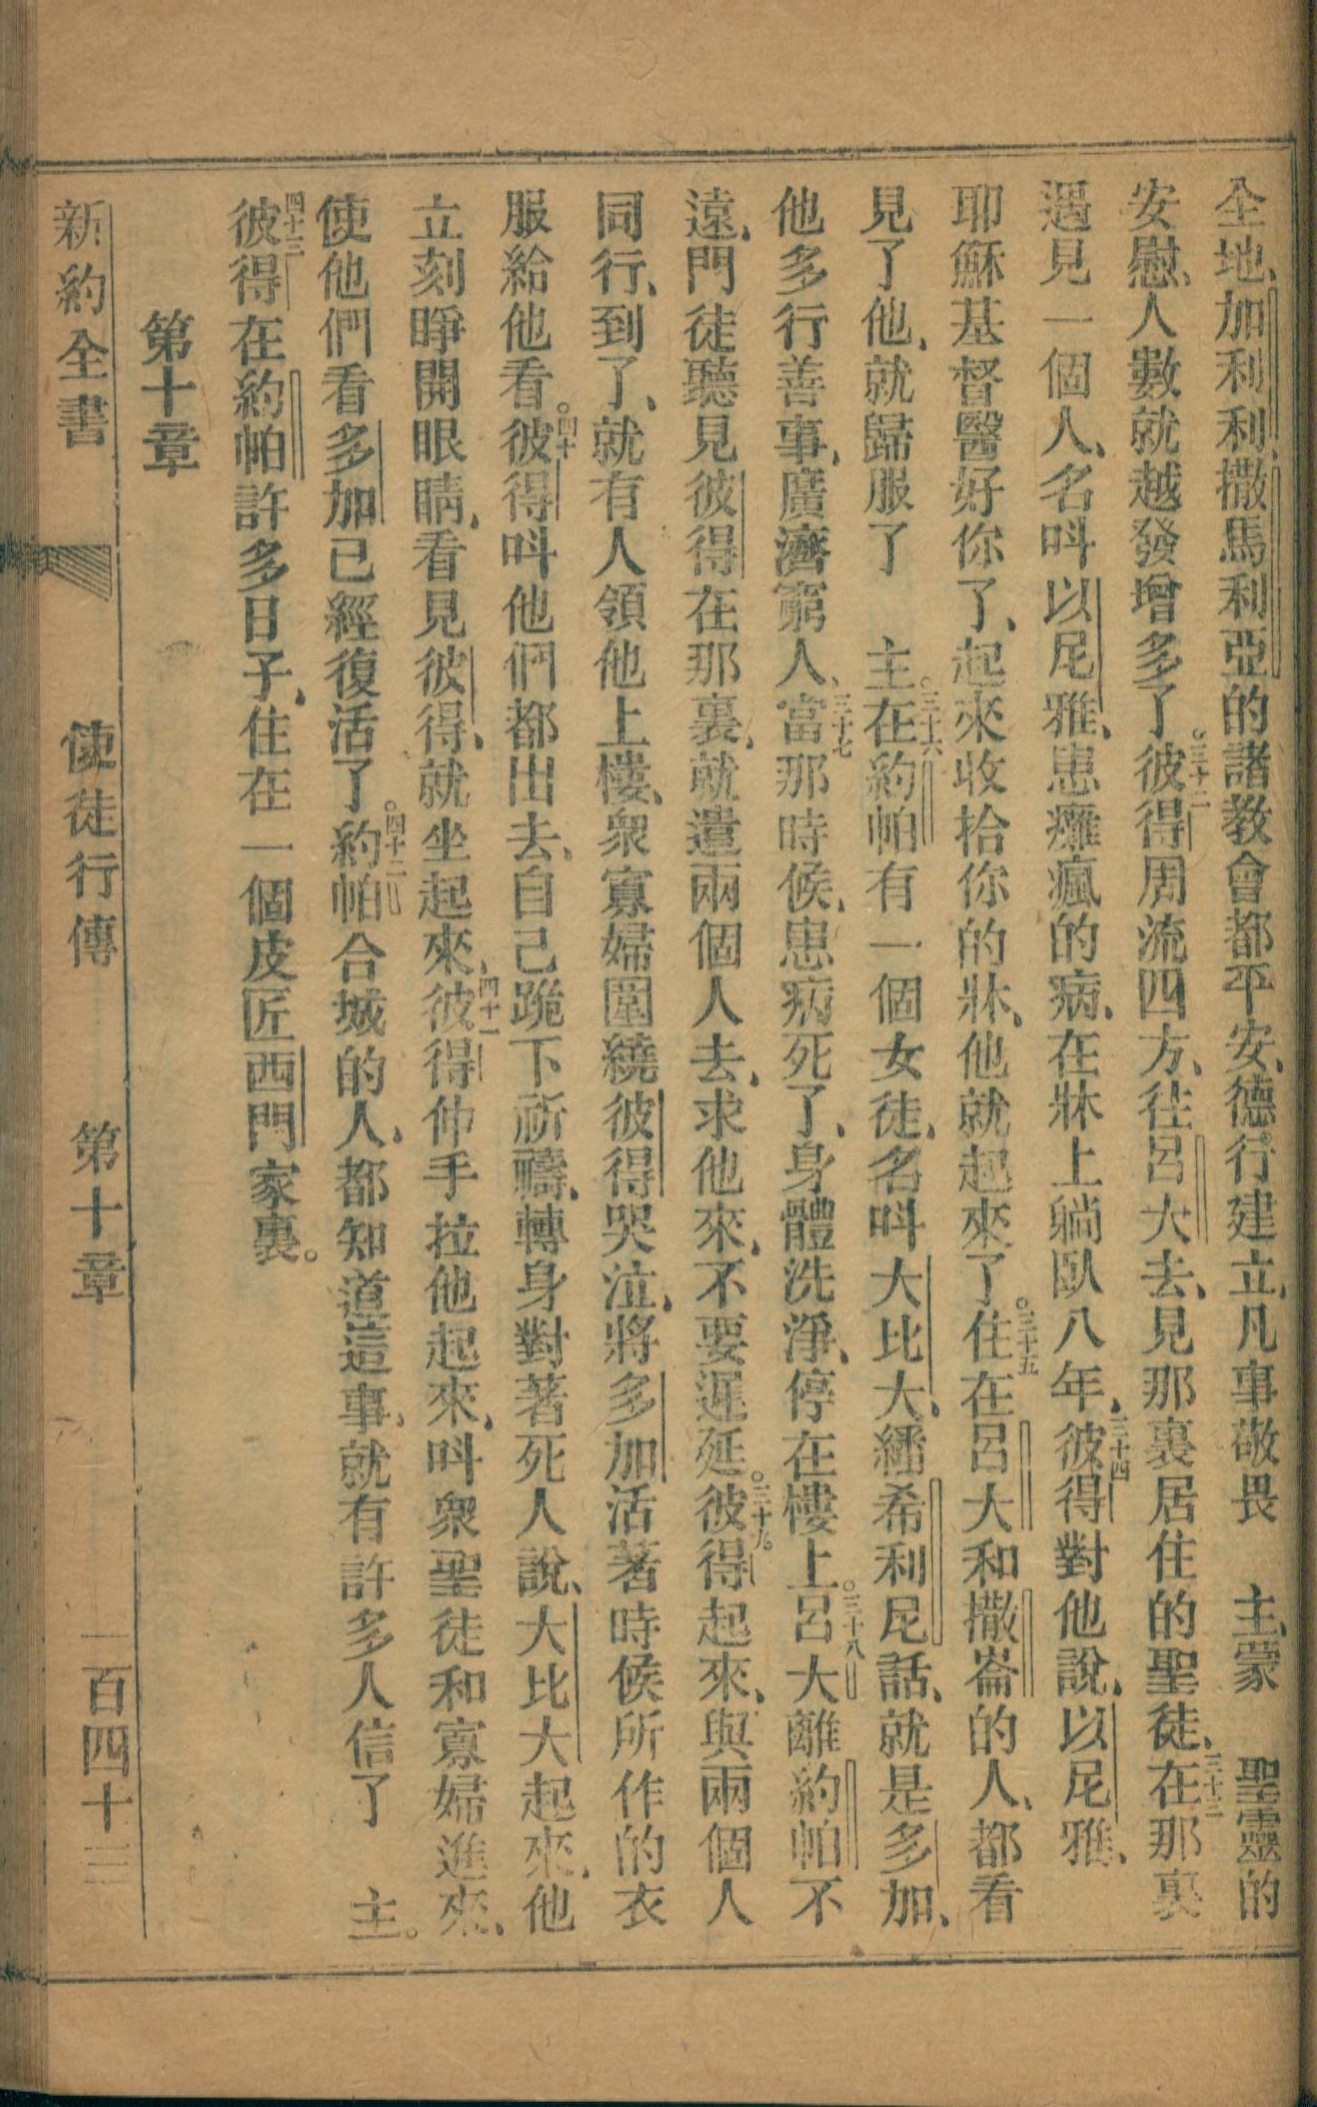 全地、加利利、撒馬利亞的諸教會都平安、德行建立、凡事敬畏　主、蒙　聖靈的
安慰、人數就越發增多了。三十二彼得周流四方、往呂大去、見那裏居住的聖徒、三十三在那裏
遇見一個人、名呌以尼雅、患癱瘋的病、在牀上躺臥八年、三十四彼得對他說、以尼雅、
耶穌基督醫好你了、起來收拾你的牀、他就起來了。三十五住在呂大和撒崙的人、都看
見了他、就歸服了　主。三十六在約帕有一個女徒、名呌大比大、繙希利尼話、就是多加、
他多行善事、廣濟窮人、三十七當那時候、患病死了、身體洗淨、停在樓上。三十八呂大離約帕不
遠、門徒聽見彼得在那裏、就遣兩個人去、求他來、不要遲延。三十九彼得起來、與兩個人
同行、到了、就有人領他上樓、衆寡婦圍繞彼得哭泣、將多加活著時候所作的衣
服給他看。四十彼得呌他們都出去、自己跪下祈禱、轉身對著死人說、大比大起來、他
立刻睜開眼睛、看見彼得、就坐起來、四十一彼得伸手拉他起來、呌衆聖徒和寡婦進來、
使他們看多加已經復活了。四十二約帕合城的人、都知道這事、就有許多人信了　主。
四十三彼得在約帕許多日子、住在一個皮匠西門家裏。
第十章
新約全書　使徒行傳　第十章　一百四十三